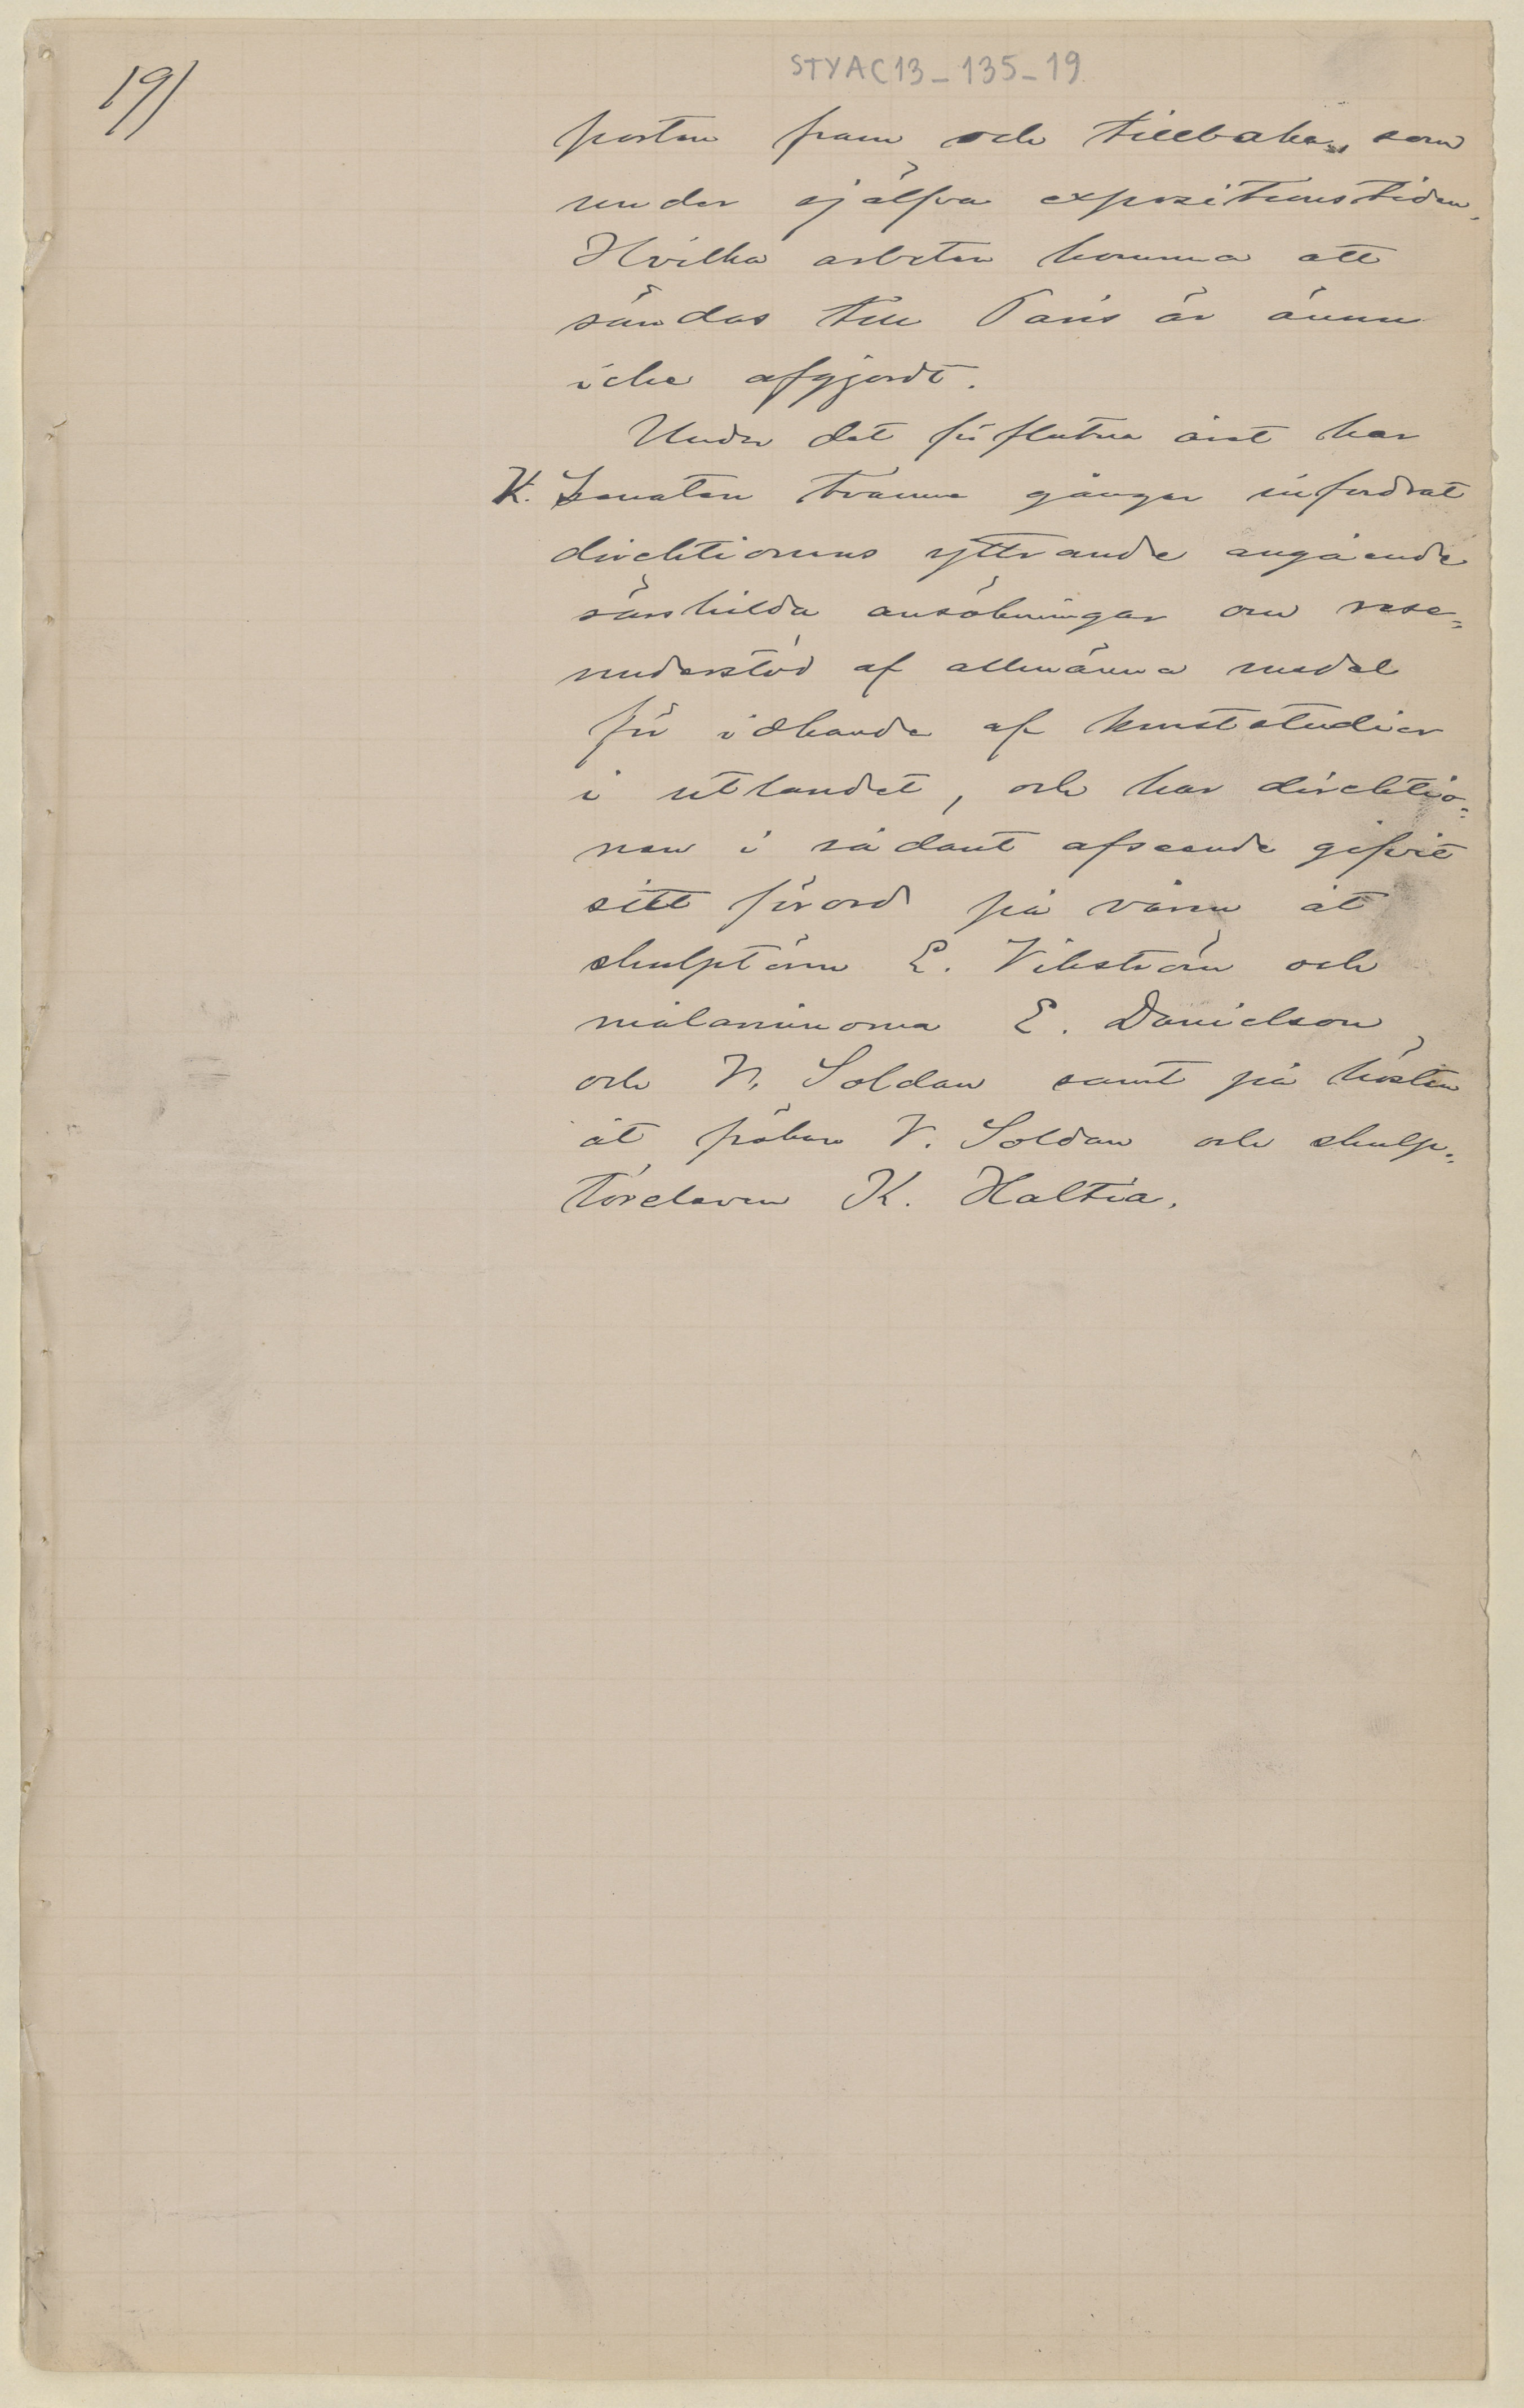 19/
STYAC13-135-19
porten fram och tillbaka, som
under själfva expositionstiden.
Hvilka arbeten komma att
sändas till Paris är ännu
icke afgjordt.
Under det förflutna året har
K. Senaten tvänne gånger infordrat
direktionens yttrande angående
särskilda ansökningar om rese-
understöd af allmänna medel
för idkande af konststudier
i utlandet, och har direktio-
nen i sådant afseende gifvit
sitt förord på våren åt
skulptören E. Vikström och
målarinnorna E. Danielson
och V. Soldan samt på hösten
åt fröken V. Soldan och skulp-
töreleven K. Haltia.